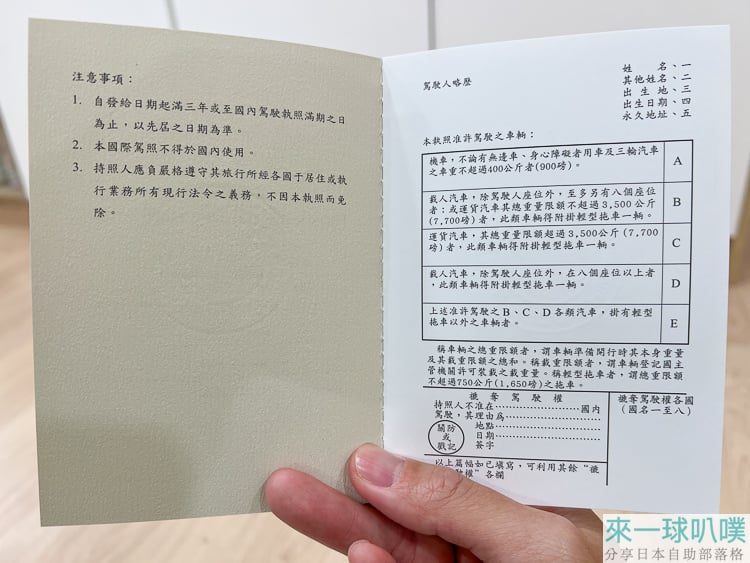 注意事項：
1. 自發給日期起滿三年或至國內駕駛執照滿期之日
為止，以先屆之日期為準。
2. 本國際駕照不得於國內使用。
3. 持照人應負嚴格遵守其旅行所經各國于居住或執
行業務所有現行法令之義務，不因本執照而免
除。
駕駛人略歷
姓名、一
其他姓名、二
出生地、三
出生日期、四
永久地址、五
本執照准許駕駛之車輛：
機車，不論有無邊車、身心障礙者用車及三輪汽車
之車重不超過400公斤者(900磅)。
A
載人汽車，除駕駛人座位外，至多另有八個座位
者；或運貨汽車其總重量限額不超過3,500公斤
(7,700磅)者，此類車輛得附掛輕型拖車一輛。
B
運貨汽車，其總重量限額超過3,500公斤(7,700
磅)者，此類車輛得附掛輕型拖車一輛。
C
載人汽車，除駕駛人座位外，在八個座位以上者
，此類車輛得附掛輕型拖車一輛。
D
上述准許駕駛之B、C、D各類汽車，掛有輕型
拖車以外之車輛者。
E
稱車輛之總重限額者，謂車輛準備開行時其本身重量
及其載重限額之總和。稱載重限額者，謂車輛登記國主
管機關許可裝載之載重量。稱輕型拖車者，謂總重限額
不超過750公斤(1,650磅)之拖車。
褫奪駕駛權
持照人不准在……………………國內
駕駛，其理由為……………………
地點……………………
日期……………………
簽字
關防
或
戳記
褫奪駕駛權各國
(國名一至八)
以上篇幅如已填寫，可利用其餘“褫
駛權”各欄
來一球叭噗
分享日本自助部落格